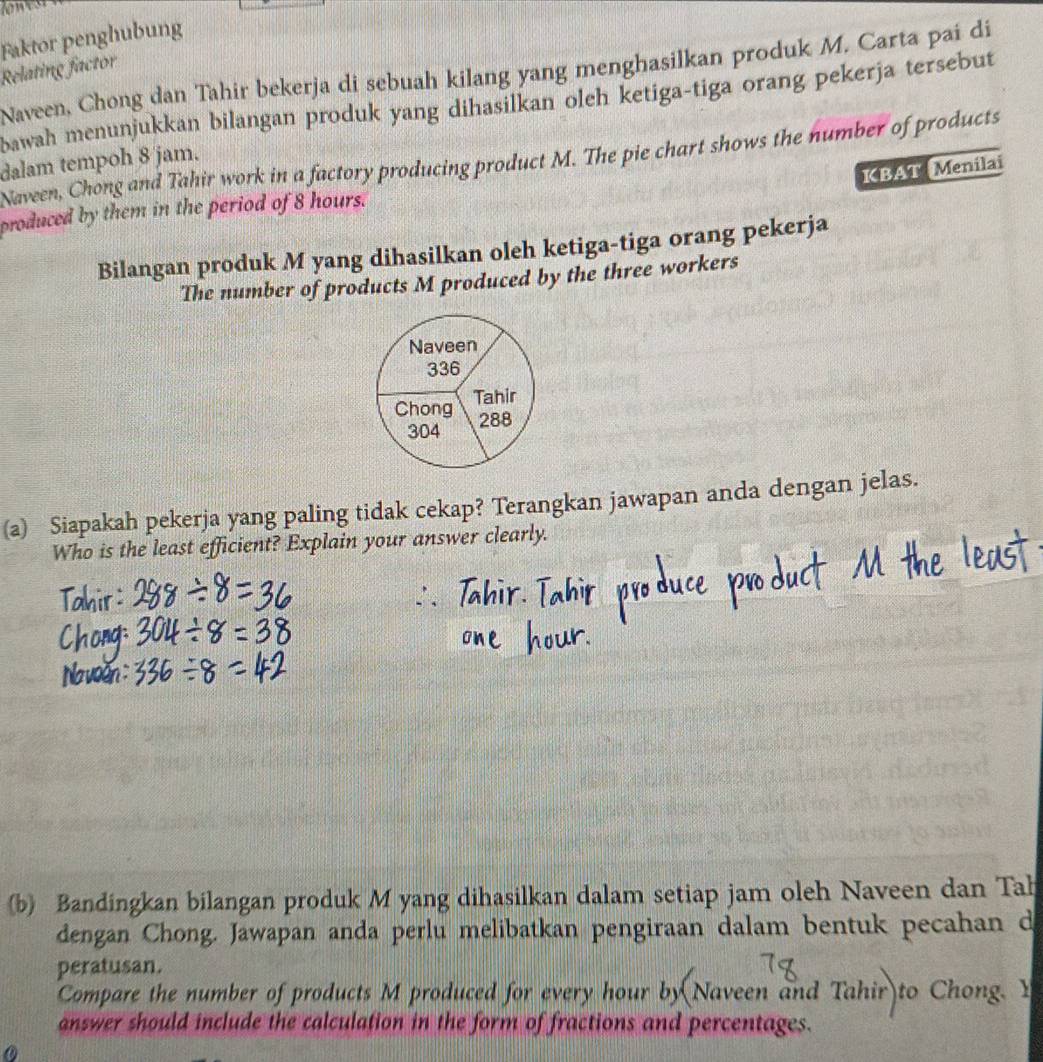 Faktor penghubung
Relating factor
Naveen, Chong dan Tahir bekerja di sebuah kilang yang menghasilkan produk M. Carta pai di
bawah menunjukkan bilangan produk yang dihasilkan oleh ketiga-tiga orang pekerja tersebut
dalam tempoh 8 jam.
Naveen, Chong and Tahir work in a factory producing product M. The pie chart shows the number of products
produced by them in the period of 8 hours.
KBAT Menilai
Bilangan produk M yang dihasilkan oleh ketiga-tiga orang pekerja
The number of products M produced by the three workers
Naveen
336
Tahir
288
Chong
304
(a) Siapakah pekerja yang paling tidak cekap? Terangkan jawapan anda dengan jelas.
Who is the least efficient? Explain your answer clearly.
Tahir: 288 ÷ 8 = 36
Chong: 304 ÷ 8 = 38
Naveen: 336 ÷ 8 = 42
∴ Tahir. Tahir produce product M the least
one hour.
(b) Bandingkan bilangan produk M yang dihasilkan dalam setiap jam oleh Naveen dan Tah
dengan Chong. Jawapan anda perlu melibatkan pengiraan dalam bentuk pecahan d
peratusan.
78
Compare the number of products M produced for every hour by (Naveen and Tahir) to Chong. Y
answer should include the calculation in the form of fractions and percentages.